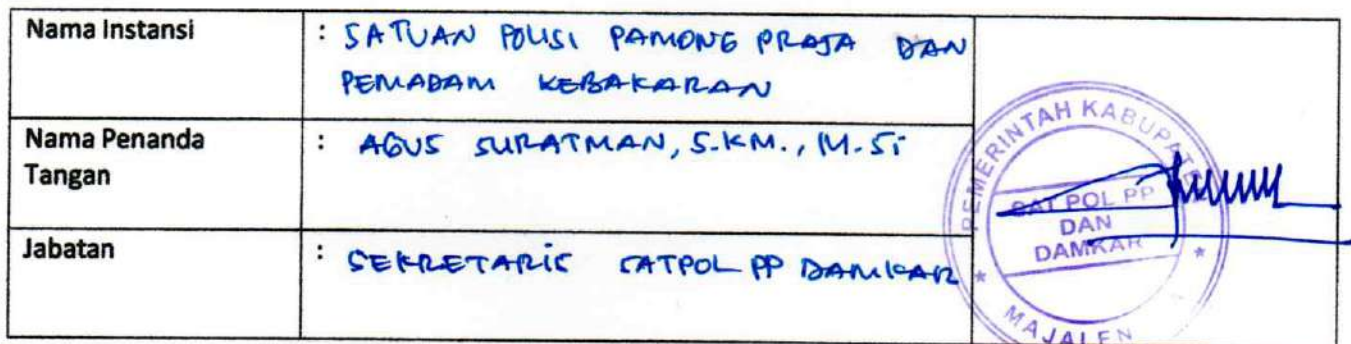 Nama Instansi : SATUAN POLISI PAMONG PRAJA DAN
PEMADAM KEBAKARAN
Nama Penanda : AGUS SURATMAN, S.KM., M.Si
Tangan
Jabatan : SEKRETARIS SATPOL PP DAMKAR
PEMERINTAH KABUPATE
SAT POL PP
DAN
DAMKAR
MAJALEN